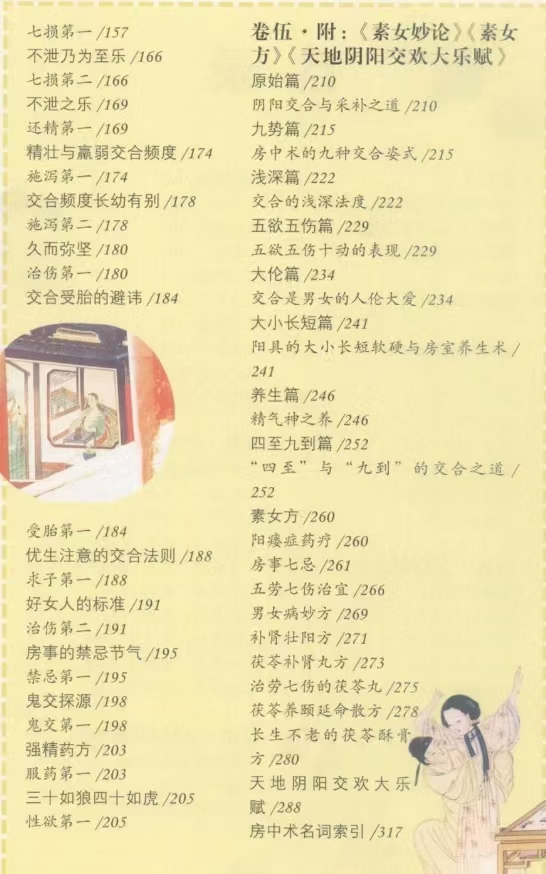 七损第一 /157
不泄乃为至乐 /166
七损第二 /166
不泄之乐 /169
还精第一 /169
精壮与羸弱交合频度 /174
施泻第一 /174
交合频度长幼有别 /178
施泻第二 /178
久而弥坚 /180
治伤第一 /180
交合受胎的避讳 /184
受胎第一 /184
优生注意的交合法则 /188
求子第一 /188
好女人的标准 /191
治伤第二 /191
房事的禁忌节气 /195
禁忌第一 /195
鬼交探源 /198
鬼交第一 /198
强精药方 /203
服药第一 /203
三十如狼四十如虎 /205
性欲第一 /205
卷伍·附：《素女妙论》《素女
方》《天地阴阳交欢大乐赋》
原始篇 /210
阴阳交合与采补之道 /210
九势篇 /215
房中术的九种交合姿式 /215
浅深篇 /222
交合的浅深法度 /222
五欲五伤篇 /229
五欲五伤十动的表现 /229
大伦篇 /234
交合是男女的人伦大爱 /234
大小长短篇 /241
阳具的大小长短软硬与房室养生术 /
241
养生篇 /246
精气神之养 /246
四至九到篇 /252
“四至”与“九到”的交合之道 /
252
素女方 /260
阳痿症药疗 /260
房事七忌 /261
五劳七伤治宜 /266
男女病妙方 /269
补肾壮阳方 /271
茯苓补肾丸方 /273
治劳七伤的茯苓丸 /275
茯苓养颐延命散方 /278
长生不老的茯苓酥膏
方 /280
天地阴阳交欢大乐
赋 /288
房中术名词索引 /317